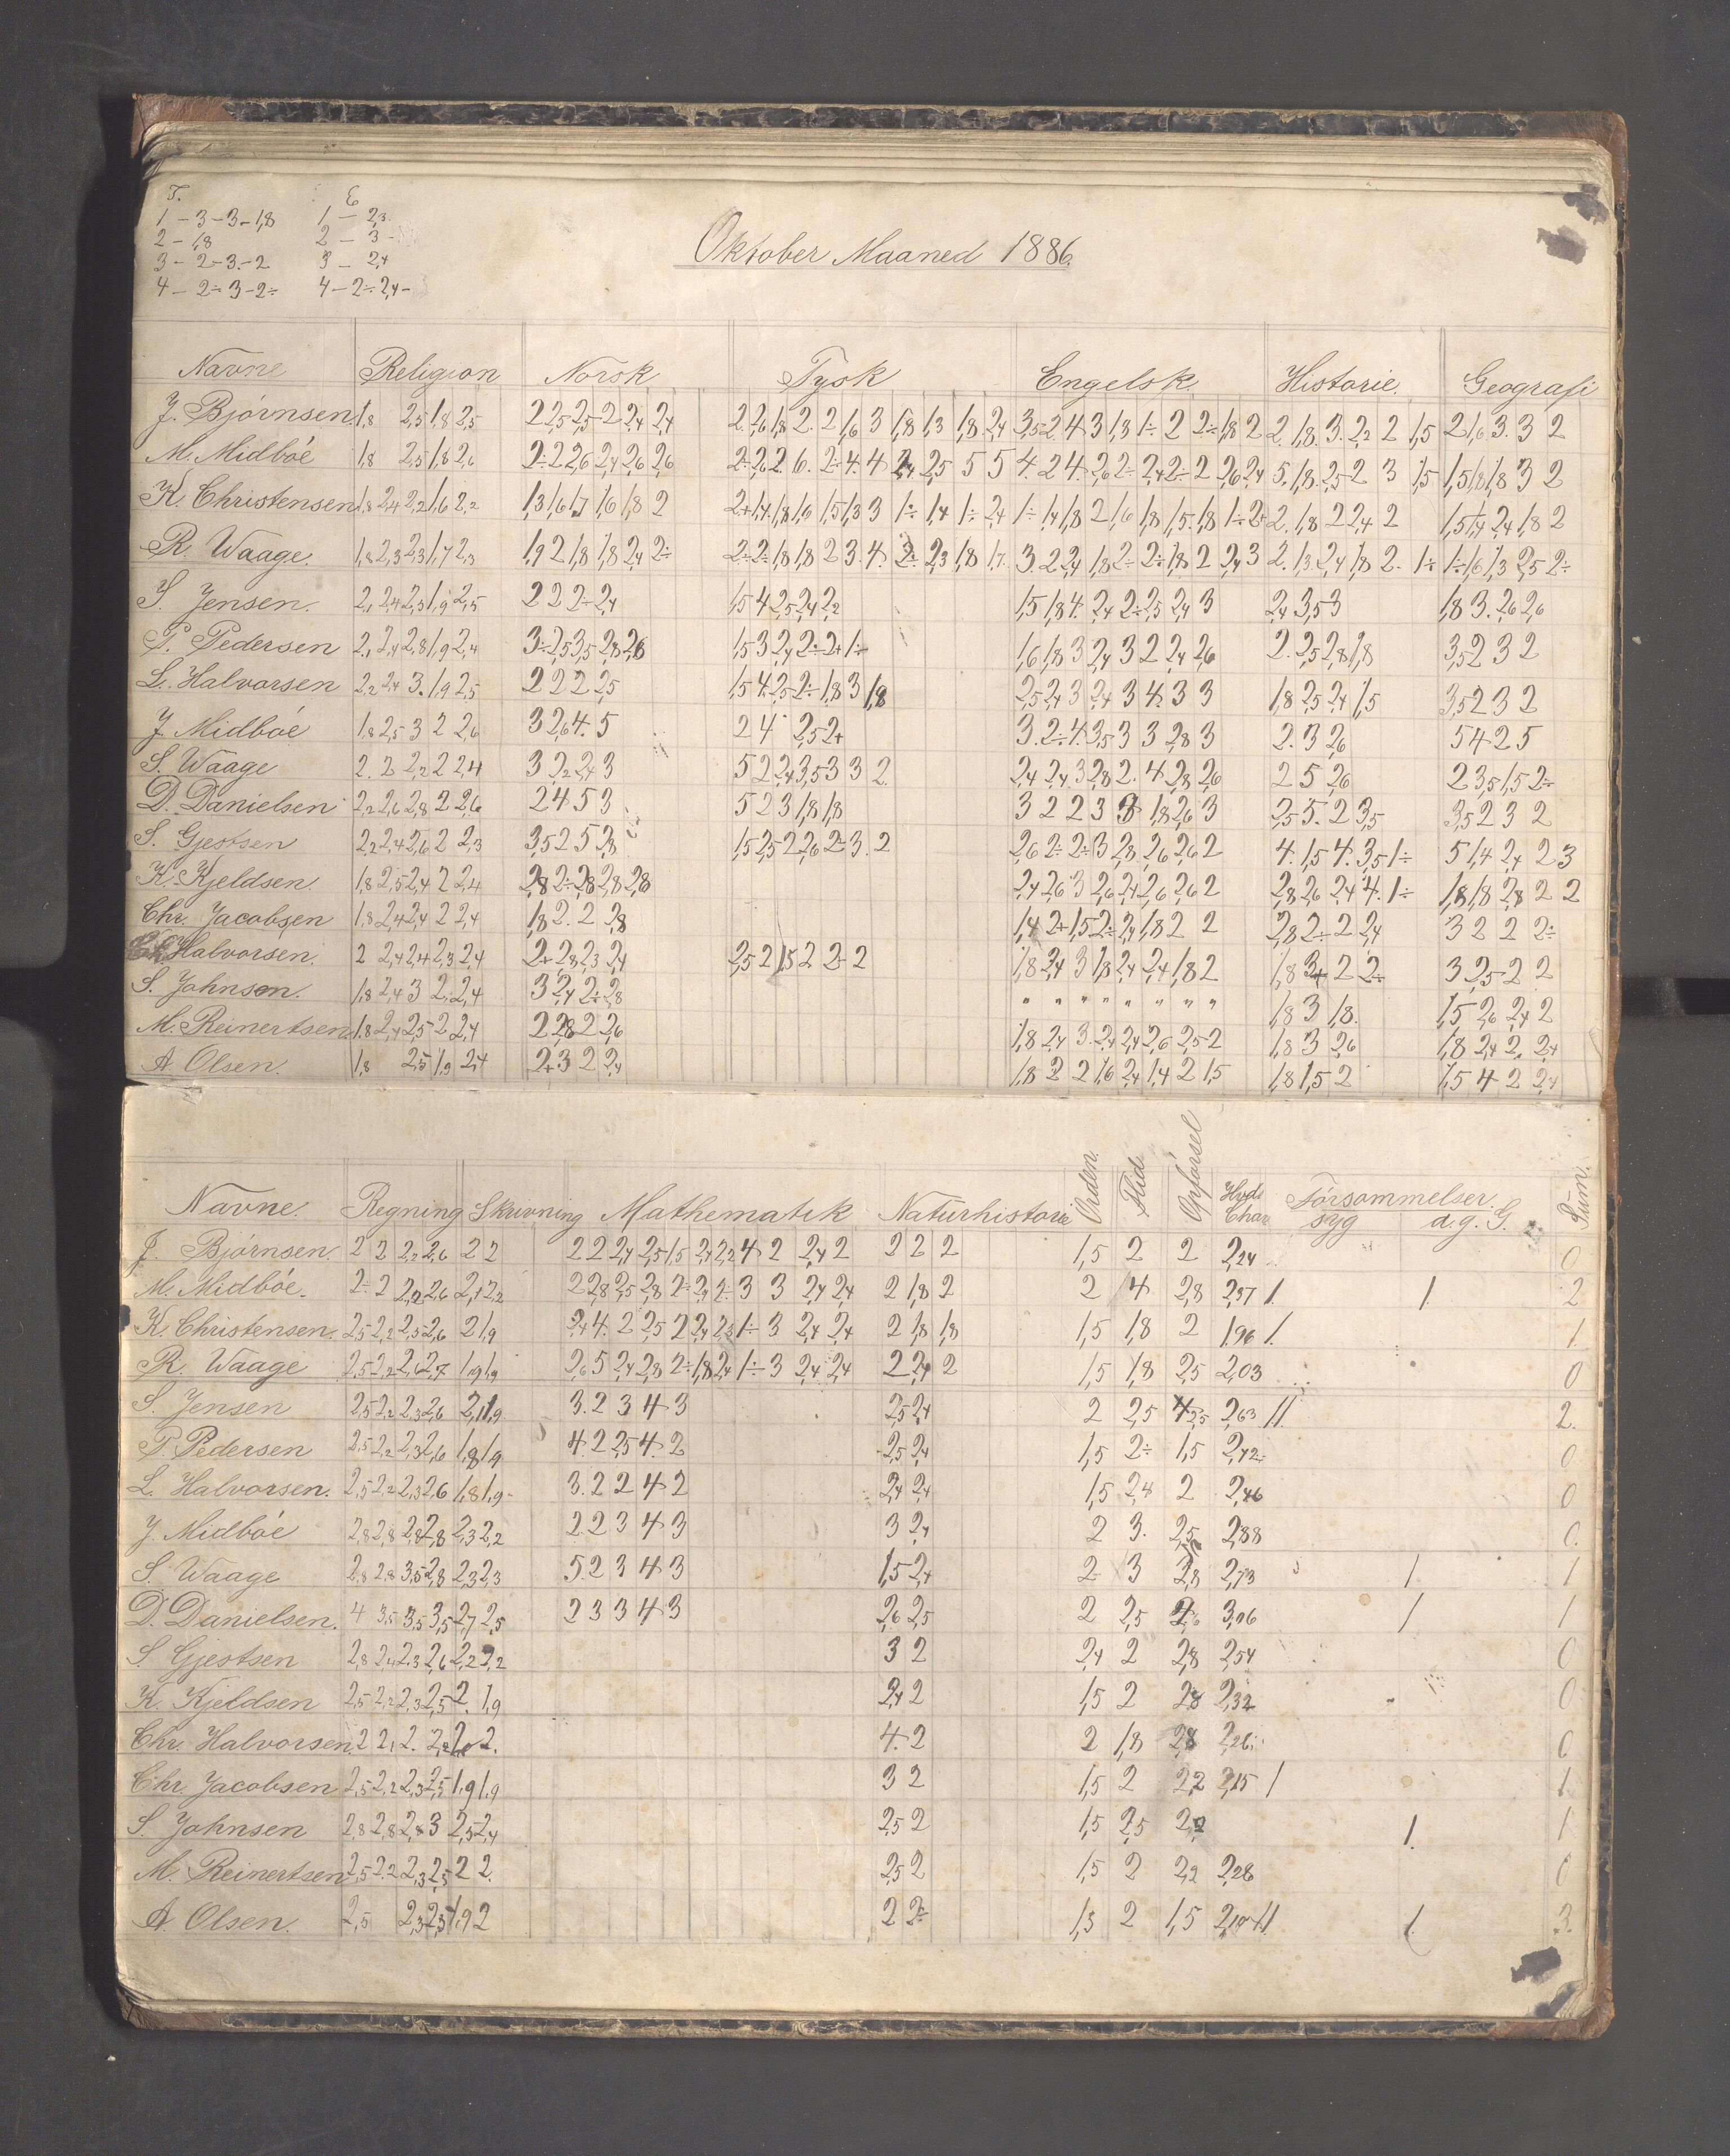 T. E
1 – 3 – 3 – 1,8 1 – 2,3
2 – 1,8 2 – 3 –
3 – 2 – 3 – 2 3 – 2,4
4 – 2÷ 3 – 2÷ 4 – 2÷ 2,4 –
Oktober Maaned 1886.
Navne Religion Norsk Tysk Engelsk. Historie. Geografi
J. Bjørnsen. 1,8 2,5 1,8 2,5 2 2,5 2,5 2 2,4 2,4
M. Midbøe 1,8 2,5 1,8 2,6
K. Christensen 1,8 2,4 2,2 1,6 2,2 1,3 1,6 1,7 1,6 1,8 2
R. Waage. 1,8 2,3 2,3 1,7 2,3 1,9 2 1,8 1,8 2,4 2÷
S. Jensen. 2,1 2,4 2,3 1,9 2,5 2 2 2÷ 2,4 1,5 4 2,5 2,4 2,2 1,5 1,8 4. 2,4 2÷ 2,5 2,4 3 2,4 3,5 3 1,8 3. 2,6 2,6
P. Pedersen 2,1 2,4 2,8 1,9 2,4 3÷ 2,5 3,5 2,8 2,8 1,5 3 2,4 2÷ 2+ 1÷ 1,6 1,8 3 2,4 3 2 2,4 2,6 2. 2,5 2,8 1,8 3,5 2 3 2
L. Halvorsen 2,2 2,4 3. 1,9 2,5 2 2 2 2,5 1,5 4. 2,5 2÷ 1,8 3 1,8 2,5 2,4 3 2,4 3 4 3 3 1,8 2,5 2,4 1,5 3,5 2 3 2
J. Midbøe 1,8 2,5 3 2 2,6 3 2,6 4. 5 2 4 2,5 2+ 3. 2÷ 4. 3,5 3 3 2,8 3 2. 3 2,6 5 4 2 5
S. Waage 2. 2 2,2 2 2,4 3 2,2 2,4 3 5 2 2,4 3,5 3 3 2. 2,4 2,4 3 2,8 2. 4 2,8 2,6 2 5 2,6 2 3,5 1,5 2÷
D. Danielsen 2,2 2,6 2,8 2 2,6 2 4 5 3 5 2 3 1,8 1,8 3 2 2 3 3 1,8 2,6 3 2,5 5. 2 3,5 3,5 2 3 2
S. Gjestsen 2,2 2,4 2,6 2 2,3 3,5 2 5 2,8 1,5 2,5 2 2,6 2÷ 3. 2 2,6 2÷ 2÷ 3 2,8 2,6 2,6 2 4. 1,5 4. 3,5 1÷ 5 1,4 2,4 2 3
K. Kjeldsen. 1,8 2,5 2,4 2 2,4 2,8 2÷ 2,8 2,8 2,8 2,4 2,6 3 2,6 2,4 2,6 2,6 2 2,8 2,6 2,4 4. 1÷ 1,8 1,8 2,8 2 2
Chr. Jacobsen 1,8 2,4 2,4 2 2,4 1,8 2. 2 2,8 1,4 2+ 1,5 2÷ 2,4 1,8 2 2 2,8 2÷ 2 2,4 3 2 2 2÷
Halvorsen. 2 2,4 2,4 2,3 2,4 2+ 2,8 2,3 2,4 2,5 2 1,5 2 2÷ 2 1,8 2,4 3 1,8 2,4 2,4 1,8 2 1,8 3+ 2 2÷ 3 2,5 2 2
S. Johnsen. 1,8 2,4 3 2. 2,4 3 2,4 2÷ 2,8 " " " " " " " " 1,8 3 1,8. 1,5 2,6 2,4 2
M. Reinertsen 1,8 2,4 2,5 2 2,4 2 2,8 2 2,6 1,8 2,4 3. 2,4 2,4 2,6 2,5 2 1,8 3 2,6 1,8 2,4 2. 2,4
A. Olsen. 1,8 2,5 1,9 2,4 2+ 3 2 2,4 1,8 2 2 1,6 2,4 1,4 2 1,5 1,8 1,5 2 1,5 4 2 2,4
Navne. Regning Skrivning Mathematik Naturhistorie Orden. Flid. Opførsel Hvd. Char. Forsømmelser. syg d.g. G. Sum.
J. Bjørnsen. 2 2 2,2 2,6 2 2 2 2 2,4 2,5 1,5 2,4 2,2 4 2 2,4 2 2 2 2 1,5 2 2 2,24 0
M. Midbøe. 2÷ 2 2,2 2,6 2,1 2,2 2 2,8 2,5 2,8 2÷ 2,4 2÷ 3 3 2,4 2,4 2 1,8 2 2 4 2,8 2,37 1. 1. 2
K. Christensen. 2,5 2,2 2,5 2,6 2 1,9 2,4 4. 2 2,5 2 2,4 2,3 1÷ 3 2,4 2,4 2 1,8 1,8 1,5 1,8 2 1,96 1. 1.
R. Waage 2,5 2,2 2,6 2,7 1,9 1,9 2,6 5 2,4 2,8 2÷ 1,8 2,4 1÷ 3 2,4 2,4 2 2,4 2 1,5 1,8 2,5 2,03 0
S. Jensen 2,5 2,2 2,3 2,6 2,1 1,9 3. 2 3 4 3 2,5 2,4 2 2,5 2,63 11 2.
P. Pedersen 2,5 2,2 2,3 2,6 1,8 1,9 4 2 2,5 4. 2 2,5 2,4 1,5 2÷ 1,5 2,42 0
L. Halvorsen. 2,5 2,2 2,3 2,6 1,8 1,9 3. 2 2 4 2 2,4 2,4 1,5 2,4 2 2,46 0
J. Midbøe 2,8 2,8 2,8 2,8 2,3 2,2 2 2 3 4 3 3 2,4 2 3. 2,5 2,88 0.
S. Waage 2,8 2,8 3,5 2,8 2,3 2,3 5. 2 3 4 3 1,5 2,4 2 3 2,8 2,73 1 1
D. Danielsen. 4 3,5 3,5 3,5 2,7 2,5 2 3 3 4 3 2,6 2,5 2 2,5 3,06 1 1
S. Gjestsen 2,8 2,4 2,3 2,6 2,2 2,2 3 2 2,4 2 2,8 2,54 0
K. Kjeldsen 2,5 2,2 2,3 2,5 2. 1,9 2,4 2 1,5 2 2,8 2,32 0
Chr. Halvorsen. 2 2,1 2. 2,2 2. 4. 2 2 1,8 2,8 2,26 0
Chr Jacobsen 2,5 2,2 2,3 2,5 1,9 1,9 3 2 1,5 2 2,2 2,15 1 1
S. Johnsen 2,8 2,8 2,8 3 2,3 2,4 2,5 2 1,5 2,5 1. 1
M. Reinertsen 2,5 2,2 2,3 2,5 2 2. 2,5 2 1,5 2 2,2 2,28 0
A. Olsen. 2,5 2,3 2,3 1,9 2 2 2÷ 1,5 2 1,5 1. 3.